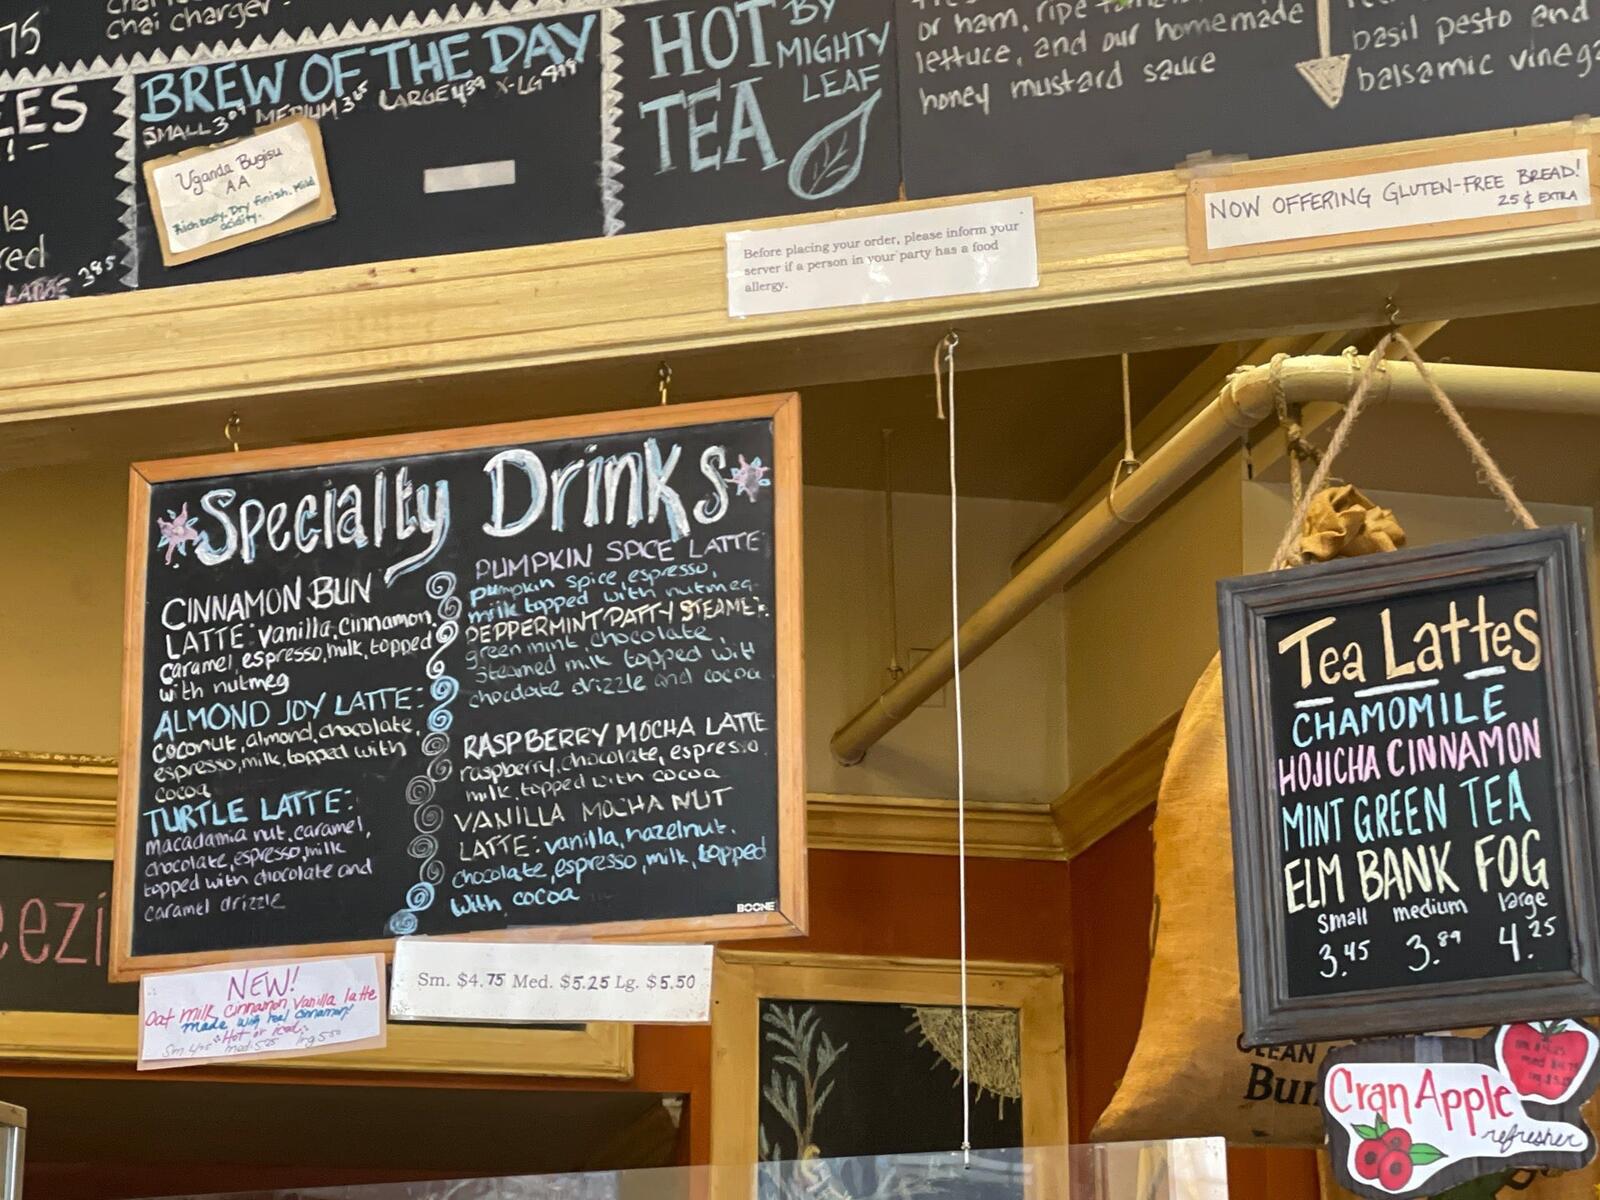 75
chai charger.
EES
la
red
LARGE 3.85
BREW OF THE DAY
SMALL 3.09 MEDIUM 3.65 LARGE 4.39 X-LG
Uganda Bugisu
AA
Rich body, Dry finish, Mild
acidity.
HOT
TEA
BY
MIGHTY
LEAF
or ham, ripe
lettuce, and our homemade
honey mustard sauce
basil pesto and
balsamic vineg
Before placing your order, please inform your
server if a person in your party has a food
allergy.
NOW OFFERING GLUTEN-FREE BREAD!
25¢ EXTRA
Specialty Drinks
CINNAMON BUN
LATTE: vanilla, cinnamon,
caramel, espresso, milk, topped
with nutmeg
ALMOND JOY LATTE:
coconut, almond, chocolate,
espresso, milk, topped with
cocoa
TURTLE LATTE:
macadamia nut, caramel,
chocolate, espresso, milk
topped with chocolate and
caramel drizzle
PUMPKIN SPICE LATTE
pumpkin spice, espresso,
milk topped with nutmeg
PEPPERMINT PATTY STEAMER:
green mint, chocolate,
steamed milk topped with
chocolate drizzle and cocoa
RASPBERRY MOCHA LATTE
raspberry, chocolate, espresso,
milk, topped with cocoa
VANILLA MOCHA NUT
LATTE: vanilla, hazelnut,
chocolate, espresso, milk, topped
with cocoa
BOONE
ezi
NEW!
Oat milk, cinnamon, vanilla latte
made with real cinnamon!
*Hot or iced*
Sm. 4.75 med 5.25 lrg 5.50
Sm. $4.75 Med. $5.25 Lg. $5.50
Tea Lattes
CHAMOMILE
HOJICHA CINNAMON
MINT GREEN TEA
ELM BANK FOG
small medium large
3.45 3.89 4.25
CLEAN
Bun
Cran Apple
refresher